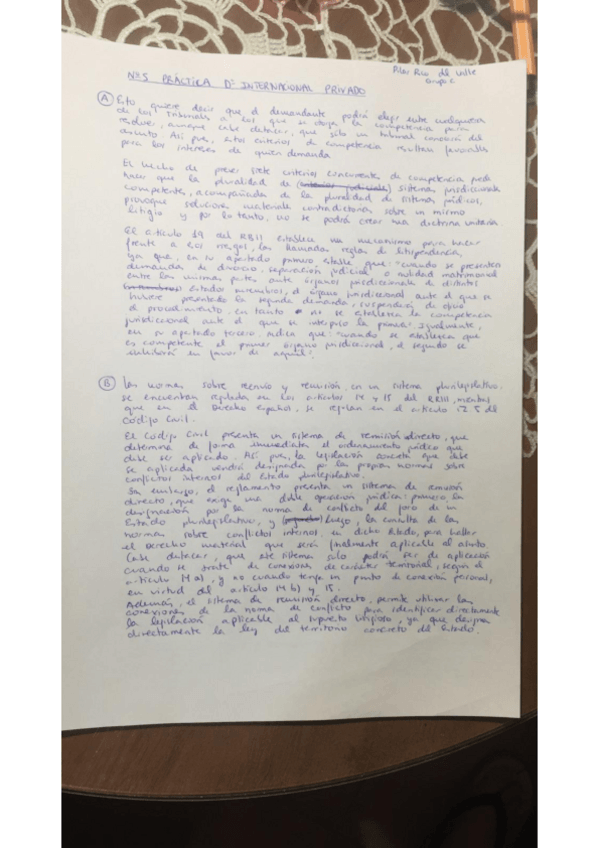 Pilar Ruiz del Valle
Grupo C
Nº5 PRÁCTICA Dº INTERNACIONAL PRIVADO
A Esto quiere decir que el demandante podrá elegir entre cualquiera
de los Tribunales a los que se otorga la competencia para
resolver, aunque cabe destacar, que sólo un tribunal conocerá del
asunto. Así pues, estos criterios de competencia resultan favorables
para los intereses de quien demanda.
El hecho de prever siete criterios concurrentes de competencia puede
hacer que la pluralidad de sistemas jurisdiccionales
competentes, acompañada de la pluralidad de sistemas jurídicos,
provoque soluciones materiales contradictorias sobre un mismo
litigio y por lo tanto, no se podrá crear una doctrina unitaria.
El artículo 19 del RBII establece un mecanismo para hacer
frente a los riesgos, las llamadas reglas de litispendencia,
ya que, en su apartado primero establece que: "cuando se presentaren
demandas de divorcio, separación judicial o nulidad matrimonial
entre las mismas partes ante órganos jurisdiccionales de distintos
Estados miembros, el órgano jurisdiccional ante el que se
hubiere presentado la segunda demanda, suspenderá de oficio
el procedimiento en tanto no se establezca la competencia
jurisdiccional ante el que se interpuso la primera". Igualmente,
en su apartado tercero, indica que: "cuando se establezca que
es competente el primer órgano jurisdiccional, el segundo se
inhibirá en favor de aquél".
B Las normas sobre reenvío y remisión, en un sistema plurilegislativo,
se encuentran reguladas en los artículos 14 y 15 del RRIII, mientras
que en el Derecho español, se regulan en el artículo 12.5 del
Código Civil.
El Código Civil presenta un sistema de remisión directo, que
determina de forma inmediata el ordenamiento jurídico que
debe ser aplicado. Así pues, la legislación concreta que debe
ser aplicada vendrá designada por las propias normas sobre
conflictos internos del Estado plurilegislativo.
Sin embargo, el reglamento presenta un sistema de remisión
directo, que exige una doble operación jurídica: primero la
designación por la norma de conflicto del foro de un
Estado plurilegislativo, y luego, la consulta de las
normas sobre conflictos internos, en dicho Estado, para hallar
el Derecho material que será finalmente aplicable al asunto.
Cabe destacar, que este sistema solo podrá ser de aplicación
cuando se trate de conexiones de carácter territorial, según el
artículo 14 a), y no cuando tenga un punto de conexión personal,
en virtud del artículo 14 b) y 15.
Además, el sistema de remisión directo, permite utilizar las
conexiones de la norma de conflicto para identificar directamente
la legislación aplicable al supuesto litigioso, ya que designa
directamente la ley del territorio concreto del Estado.